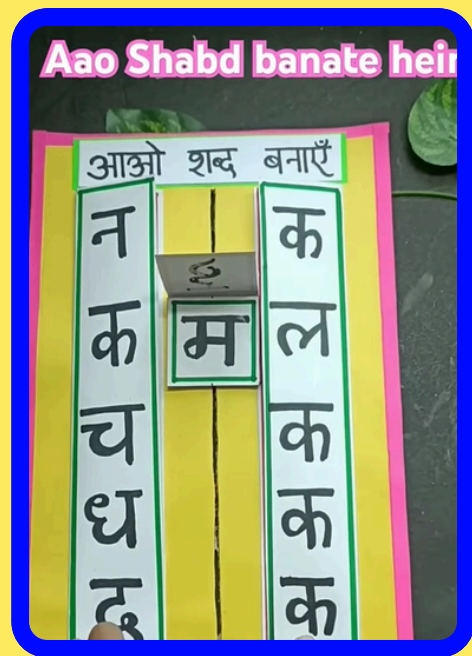 Aao Shabd banate hein
आओ शब्द बनाएँ
न क
क म ल
च क
ध क
द क